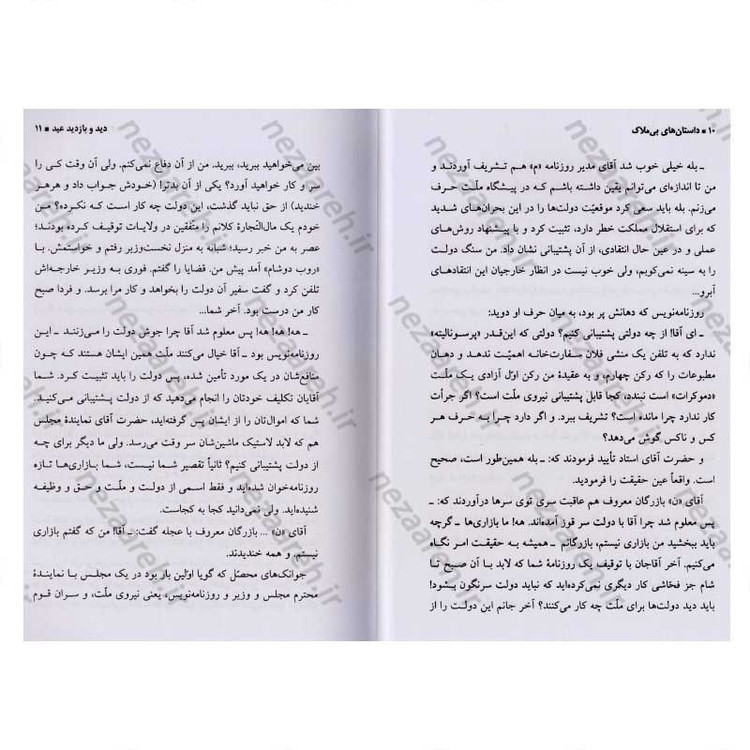 ۱۰ ■ داستان‌های بی‌ملاک
ـ بله خیلی خوب شد آقای مدیر روزنامه «م» هم تشریف آوردند و
من تا اندازه‌ای می‌توانم یقین داشته باشم که در پیشگاه ملّت حرف
می‌زنم. بله باید سعی کرد موقعیّت دولت‌ها را در این بحران‌های شدید
که برای استقلال مملکت خطر دارد، تثبیت کرد و با پیشنهاد روش‌های
عملی و در عین حال انتقادی، از آن پشتیبانی نشان داد. من سنگ دولت
را به سینه نمی‌کوبم، ولی خوب نیست در انظار خارجیان این انتقادهای
آبرو...
روزنامه‌نویس که دهانش پر بود، به میان حرف او دوید:
ـ ای آقا! از چه دولتی پشتیبانی کنیم؟ دولتی که این‌قدر «پرسونالیته»
ندارد که به تلفن یک منشی فلان سفارت‌خانه اهمیّت ندهد و دهان
مطبوعات را که رکن چهارم، و به عقیدهٔ من رکن اوّل آزادی یک ملّت
«دموکرات» است نبندد، کجا قابل پشتیبانی نیروی ملّت است؟ اگر جرأت
کار ندارد چرا مانده است؟ تشریف ببرد. و اگر دارد چرا به حرف هر
کس و ناکس گوش می‌دهد؟
و حضرت آقای استاد تأیید فرمودند که: ـ بله همین‌طور است، صحیح
است. واقعاً عین حقیقت را فرمودید.
آقای «ن» بازرگان معروف هم عاقبت سری توی سرها درآوردند که: ـ
پس معلوم شد چرا آقا با دولت سر قوز آمده‌اند. هه! ما بازاری‌ها ـ گرچه
باید ببخشید من بازاری نیستم، بازرگانم ـ همیشه به حقیقت امر نگاه
می‌کنیم. آخر آقاجان با توقیف یک روزنامهٔ شما که لابد با آن صبح تا
شام جز فحّاشی کار دیگری نمی‌کرده‌اید که نباید دولت سرنگون بشود!
باید دید دولت‌ها برای ملّت چه کار می‌کنند؟ آخر جانم این دولت را از
دید و بازدید عید ■ ۱۱
بین می‌خواهید ببرید، ببرید. من از آن دفاع نمی‌کنم. ولی آن وقت کی را
سر و کار خواهید آورد؟ یکی از آن بدتر! (خودش جواب داد و هرهر
خندید) از حق نباید گذشت، این دولت چه کار است که نکرده؟ من
خودم یک مال‌التّجارهٔ کلانم را متّفقین در ولایات توقیف کرده بودند؛
عصر به من خبر رسید؛ شبانه به منزل نخست‌وزیر رفتم و خواستمش. با
«روب دوشام» آمد پیش من. قضایا را گفتم. فوری به وزیر خارجه‌اش
تلفن کرد و گفت سفیر آن دولت را بخواهد و کار مرا برسد. و فردا صبح
کار من درست بود. آخر شما...
ـ هه! هه! هه! پس معلوم شد آقا چرا جوش دولت را می‌زنند ...
روزنامه‌نویس بود ـ آقا خیال می‌کنند ملّت همین ایشان هستند که چون
منافع‌شان در یک مورد تأمین شده، پس دولت را باید تثبیت کرد. شما
آقایان تکلیف خودتان را انجام می‌دهید که از دولت پشتیبانی می‌کنید.
شما که اموال‌تان را از ایشان پس گرفته‌اید، حضرت آقای نمایندهٔ مجلس
هم که لابد لاستیک ماشین‌شان سر وقت می‌رسد. ولی ما دیگر برای چه
از دولت پشتیبانی کنیم؟ ثانیاً تقصیر شما نیست، شما بازاری‌ها تازه
روزنامه‌خوان شده‌اید و فقط اسمی از دولت و ملّت و حق و وظیفه
شنیده‌اید. ولی نمی‌دانید کجا به کجاست.
آقای «ن» ... بازرگان معروف با عجله گفت: ـ آقا من که گفتم بازاری
نیستم. و همه خندیدند.
جوانک‌های محصّل که گویا اوّلین بار بود در یک مجلس با نمایندهٔ
محترم مجلس و وزیر و روزنامه‌نویس، یعنی نیروی ملّت، و سران قوم
nezaareh.ir
nezaareh.ir
nezaareh.ir
nezaareh.ir
nezaareh.ir
nezaareh.ir